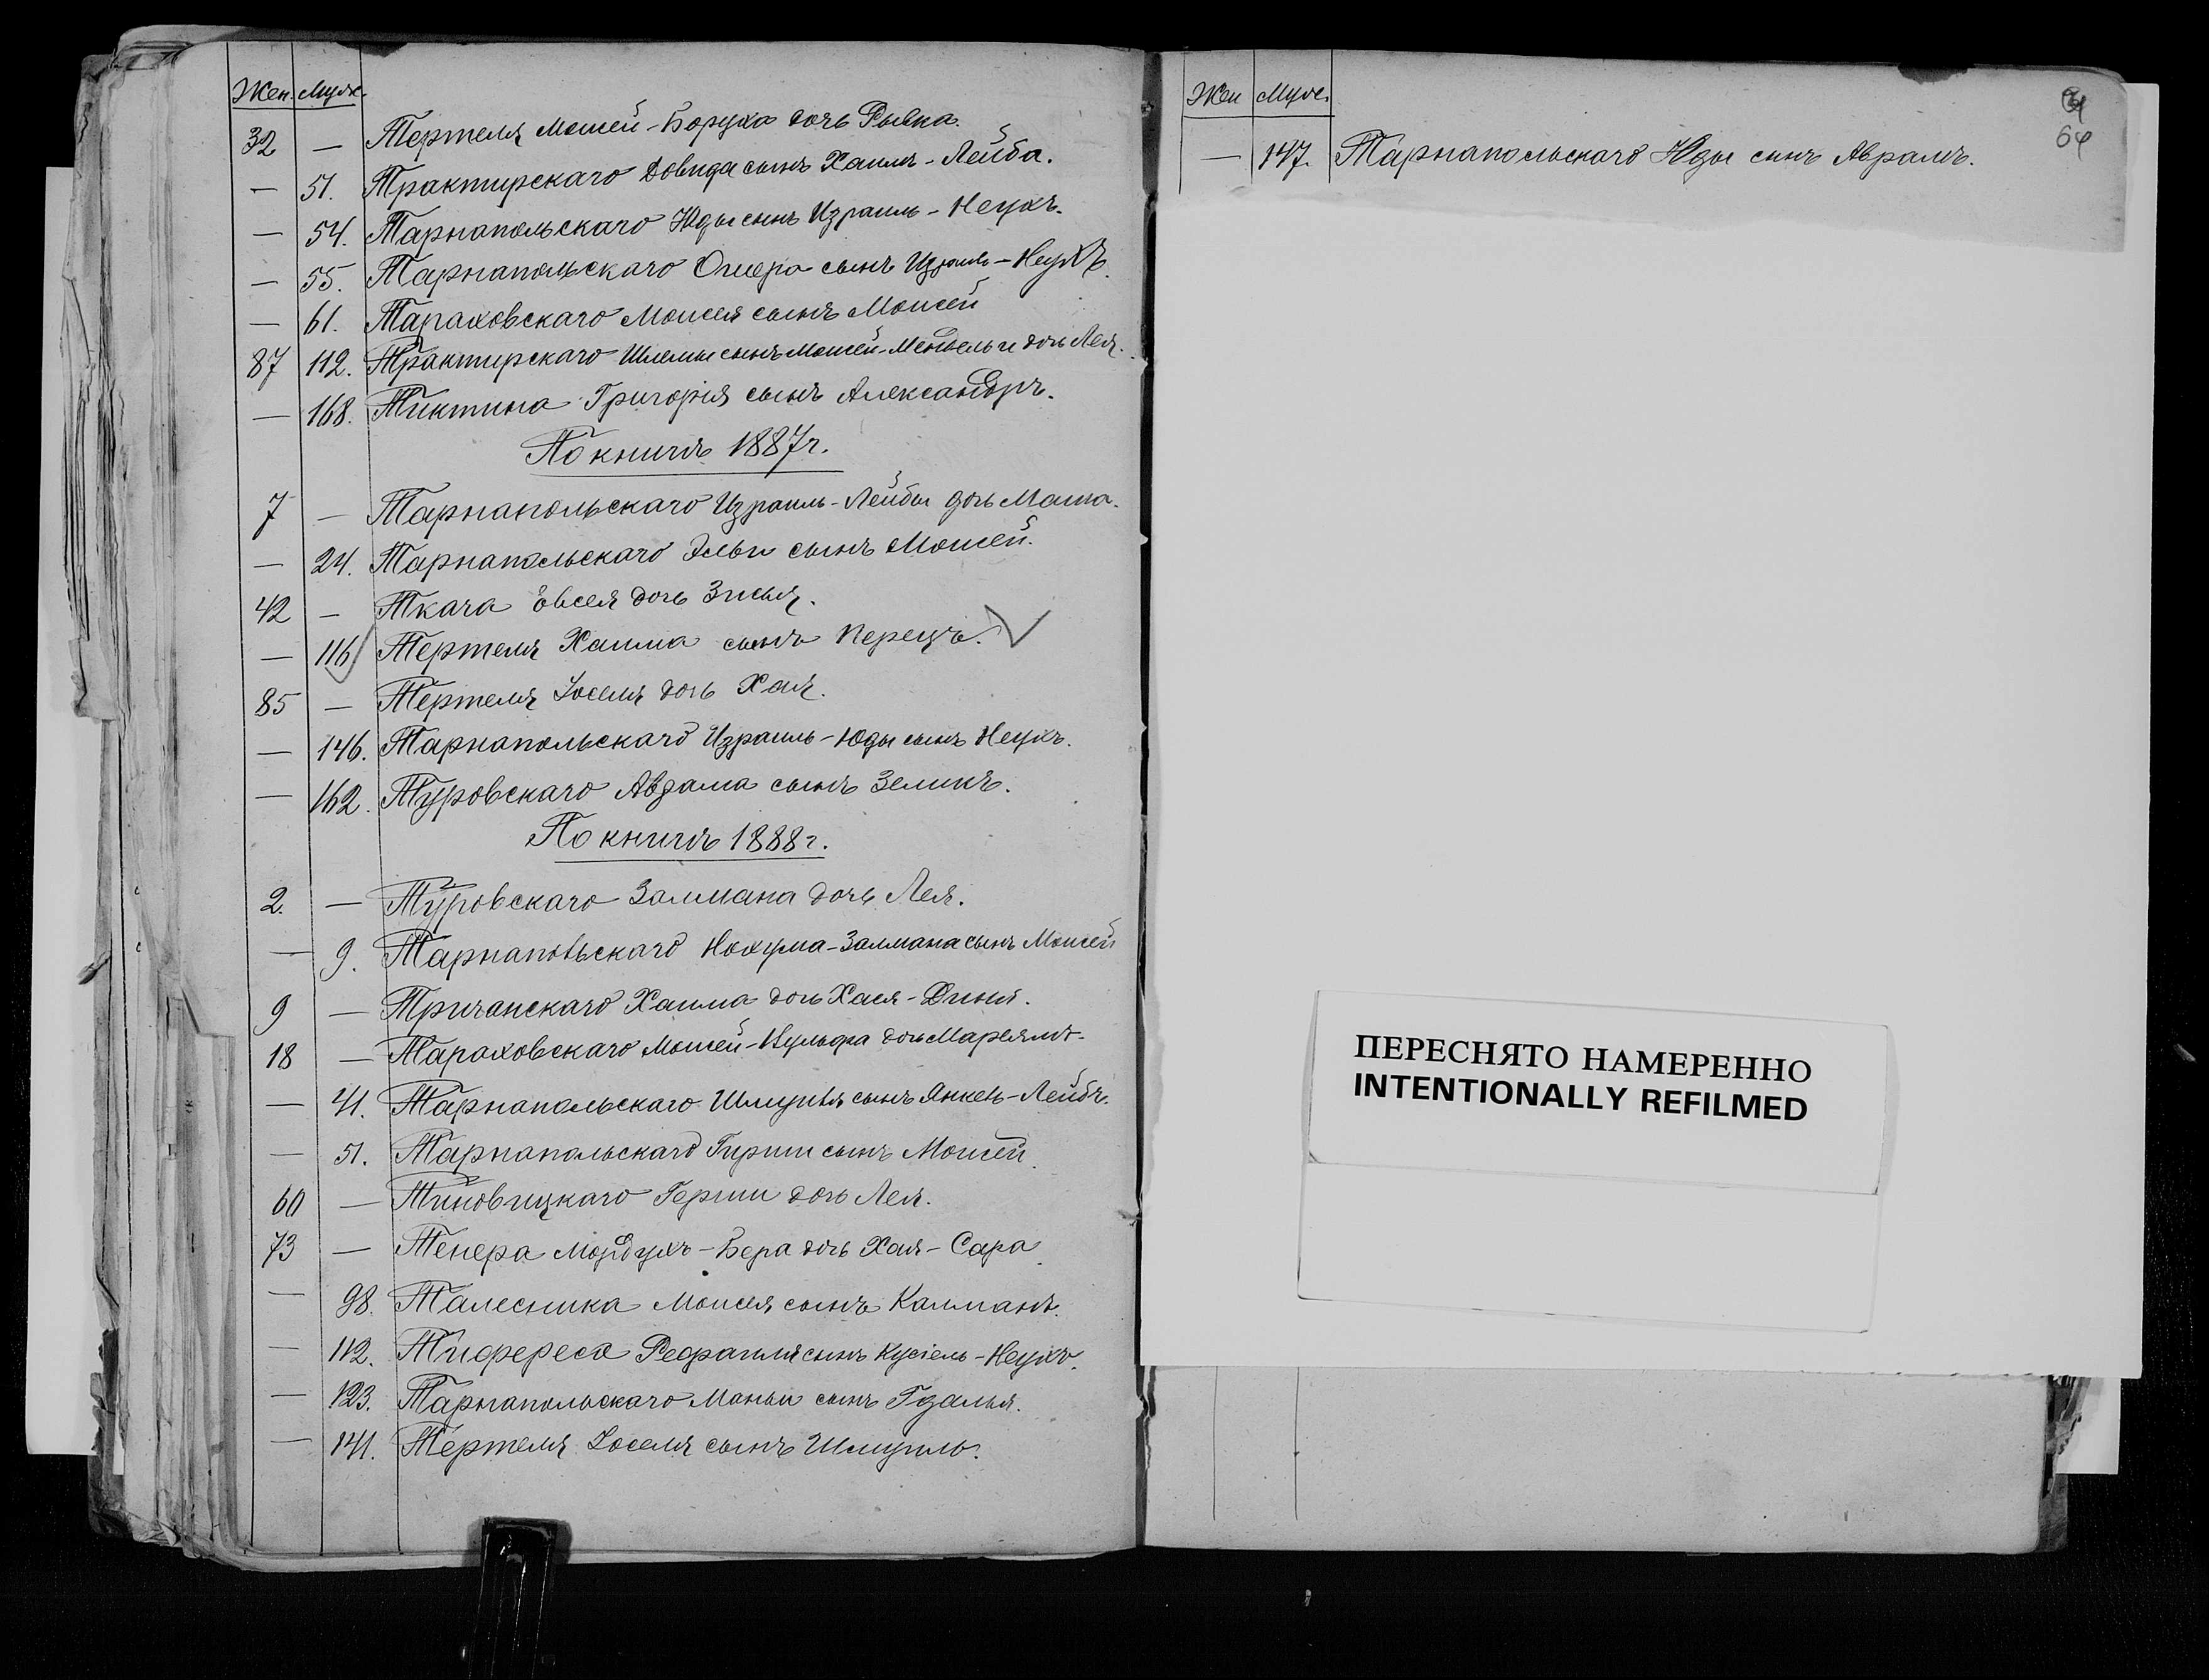 Жен. Муж.
32 — Тертеля Мошей-Боруха дочь Рывка.
— 51. Трактирскаго Довида сынъ Хаимъ-Лейба.
— 54. Тарнапольскаго Юды сынъ Израиль-Неухъ.
— 55. Тарнапольскаго Ошера сынъ Израиль-Неухъ.
— 61. Тараховскаго Моисея сынъ Моисей
87 112. Трактирскаго Шлемы сынъ Мошей-Мендель и дочь Лея.
— 168. Тиктина Григорія сынъ Александръ.
По книгѣ 1887 г.
7 — Тарнапольскаго Израиль-Лейбы дочь Маша.
— 24. Тарнапольскаго Эльи сынъ Мошей.
42 — Ткача Овсея дочь Зисья.
— 116 Тертеля Хаима сынъ Перецъ.
85 — Тертеля Іоселя дочь Хая.
— 146. Тарнапольскаго Израиль-Юды сынъ Неухъ.
— 162. Туровскаго Авзама сынъ Зеликъ.
По книгѣ 1888 г.
2. — Туровскаго Залмана дочь Лея.
— 9. Тарнапольскаго Нохума-Залмана сынъ Моисей
9 — Тричанскаго Хаима дочь Хася-Диня.
18 — Тараховскаго Мошей-Вульфа дочь Марьямъ.
— 41. Тарнапольскаго Шмуля сынъ Янкель-Лейбъ.
— 51. Тарнапольскаго Гирши сынъ Мошей.
60 — Тиновицкаго Герши дочь Лея.
73 — Тенера Мордухъ-Бера дочь Хая-Сара.
— 98. Талесника Моисея сынъ Калманъ.
— 112. Тифереса Рефаиля сынъ Кусіель-Неухъ.
— 123. Тарнапольскаго Маньи сынъ Гдалья.
— 141. Тертеля Іоселя сынъ Шмуиль.
Жен Муж.
64
— 147. Тарнапольскаго Юды сынъ Аврамъ.
ПЕРЕСНЯТО НАМЕРЕННО
INTENTIONALLY REFILMED